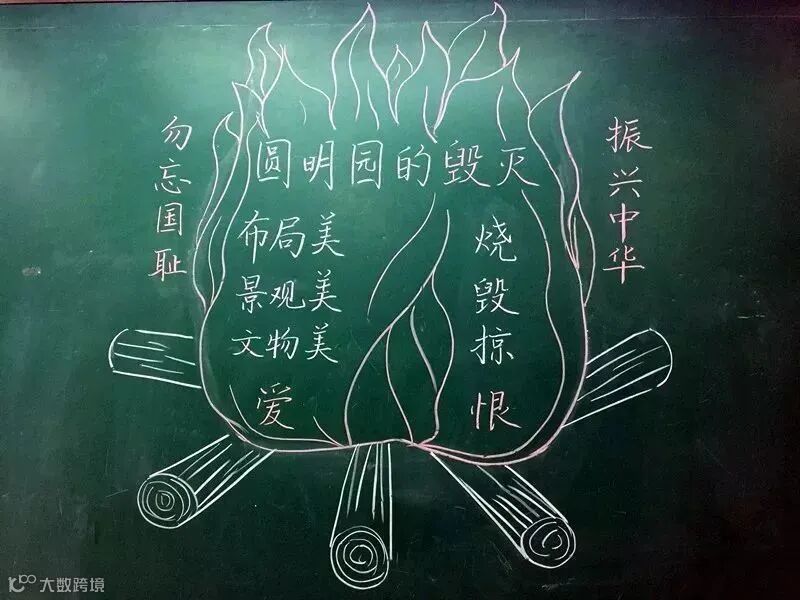 圆明园的毁灭
勿忘国耻
布局美
景观美
文物美
爱
烧
毁
掠
恨
振兴中华
大数跨境